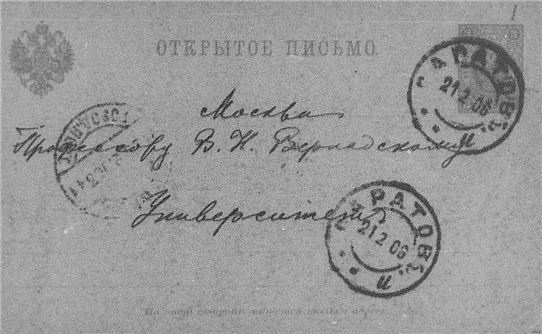 ОТКРЫТОЕ ПИСЬМО.
САРАТОВЪ
21 2 06
Москва
Профессору В. И. Вернадскому
Университетъ
САРАТОВЪ
21 2 06
На этой сторонѣ
адреса.